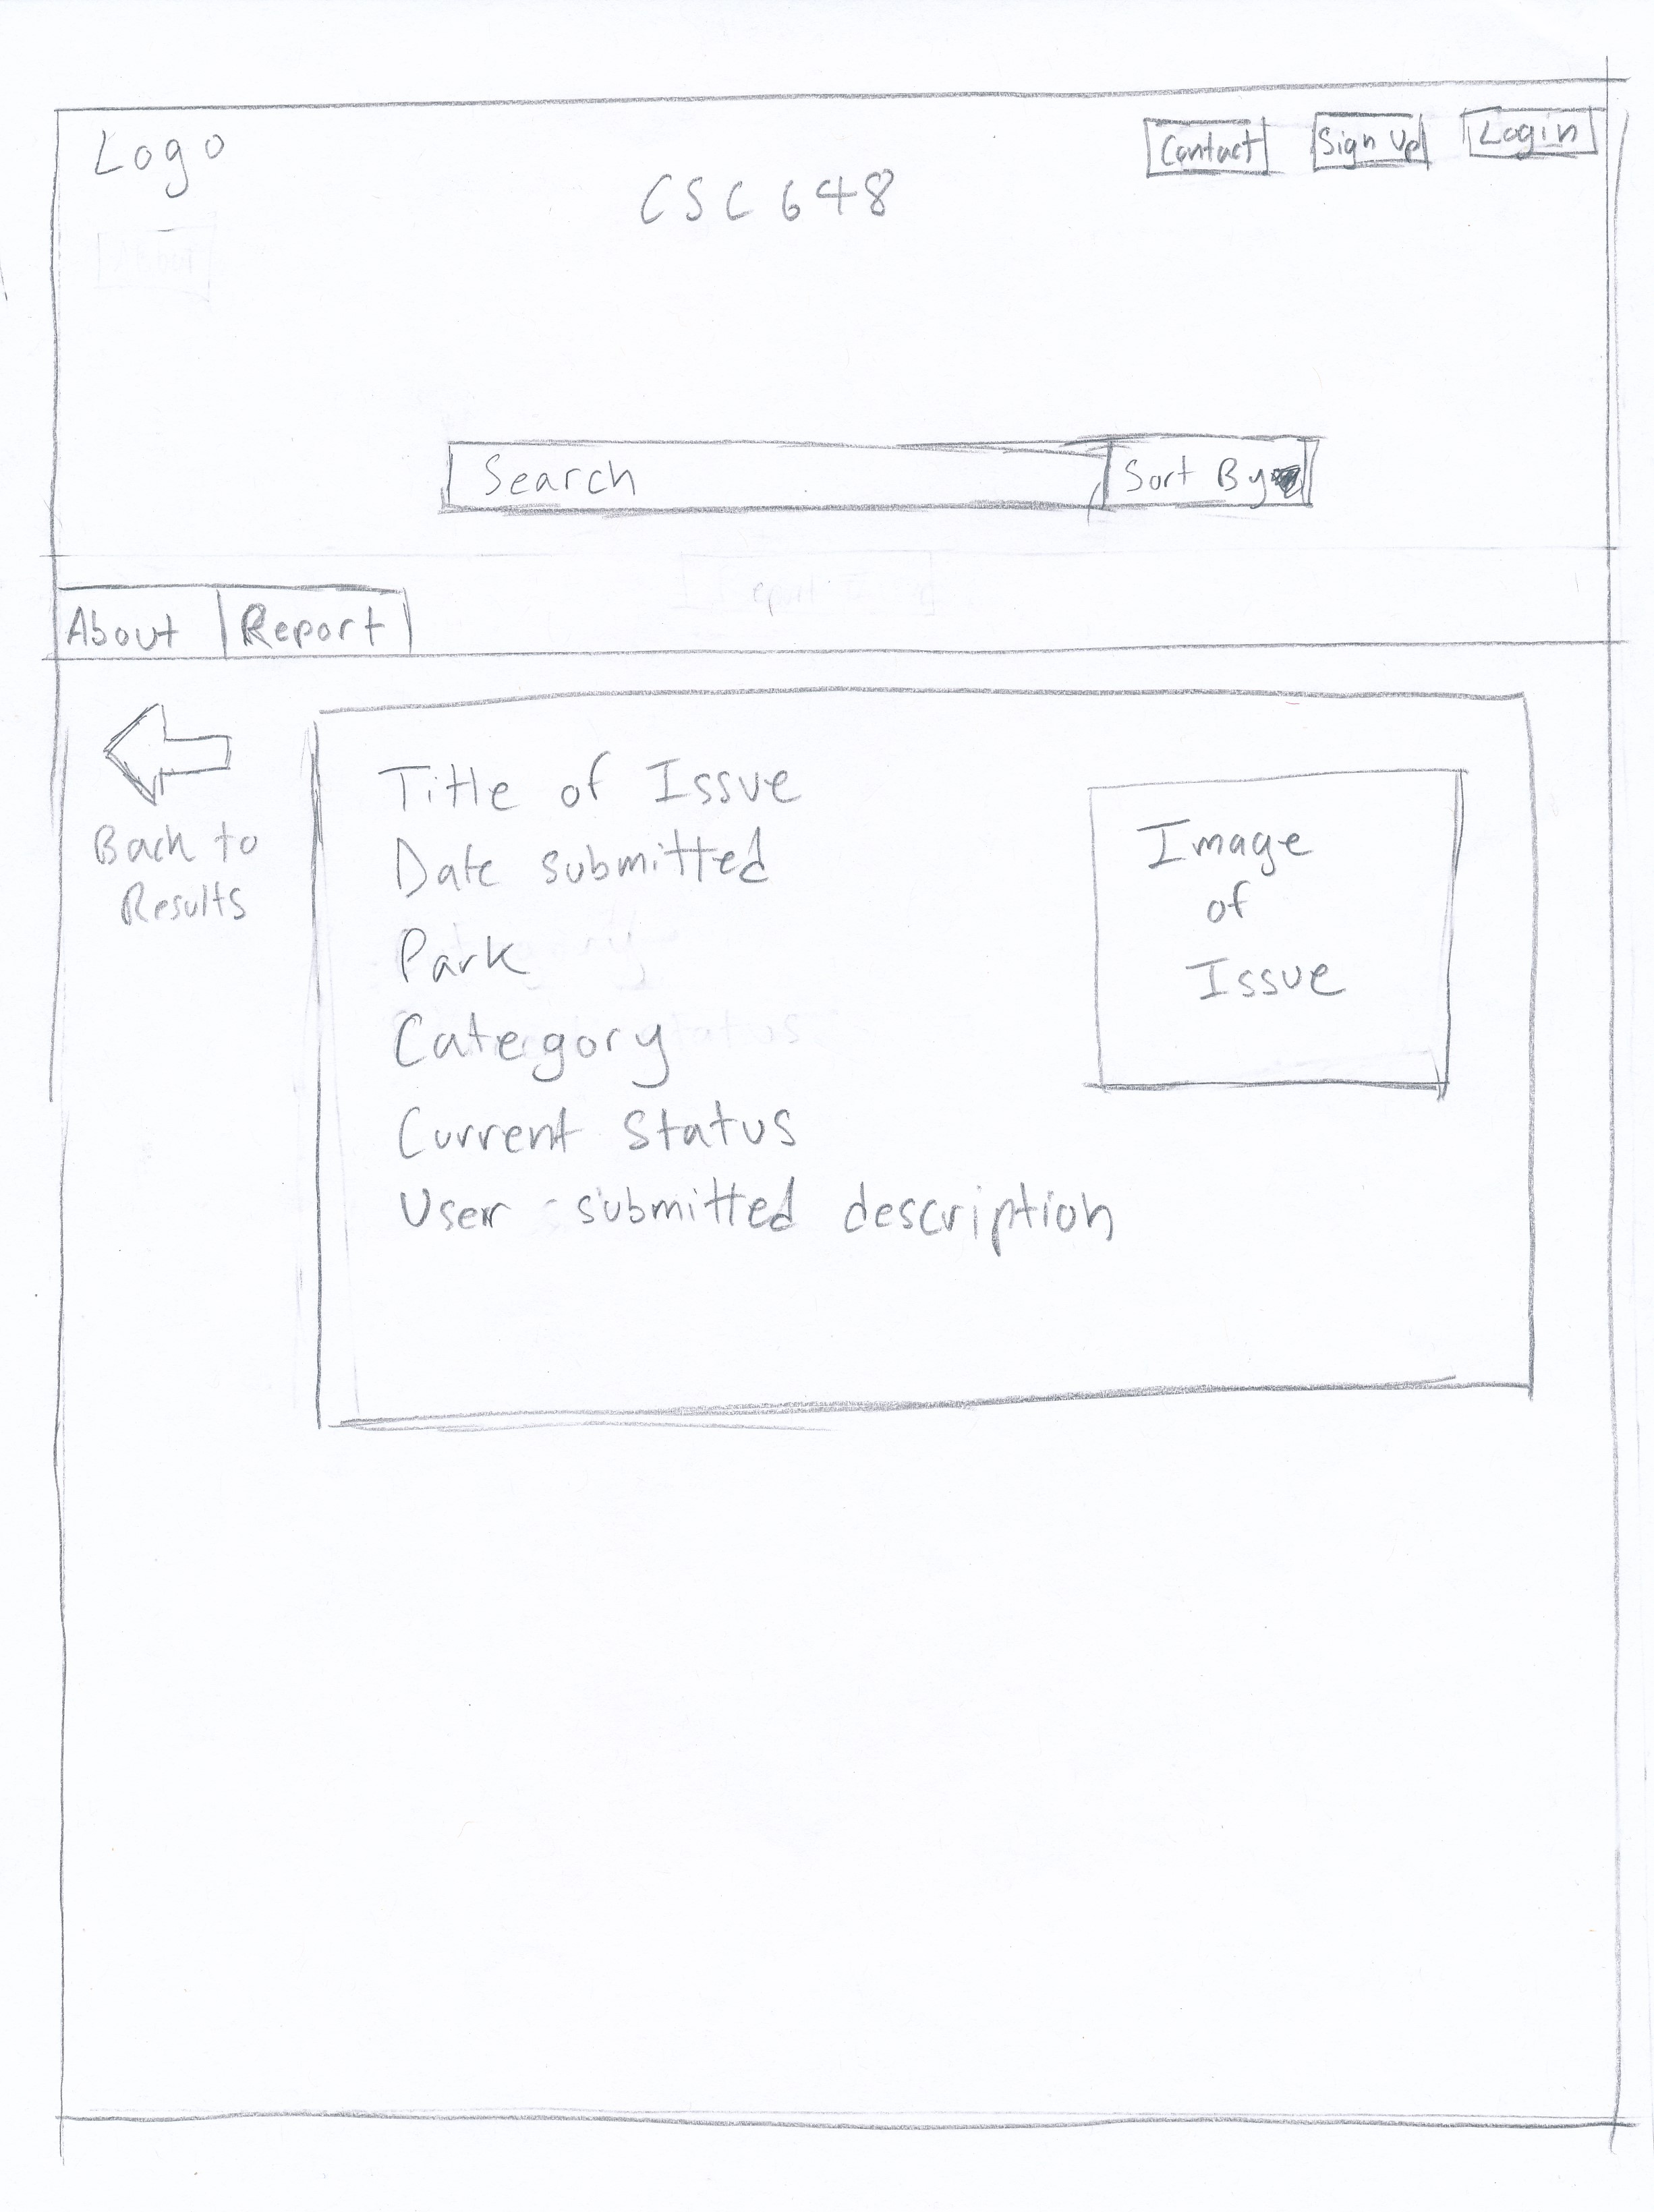 Logo
Contact
Sign Up
Login
CSC 648
Search
Sort By
About
Report
Back to
Results
Title of Issue
Date submitted
Park
Catergory
Current Status
User-submitted description
Image
of
Issue